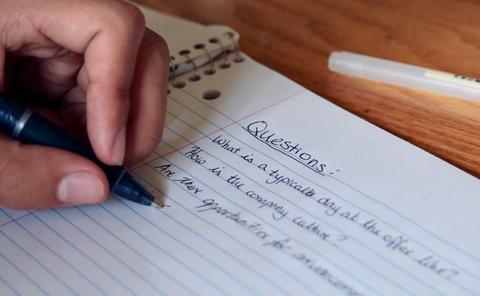 Questions:
What is a typical day at the office like?
How is the company culture?
Are their opportunities for advancement